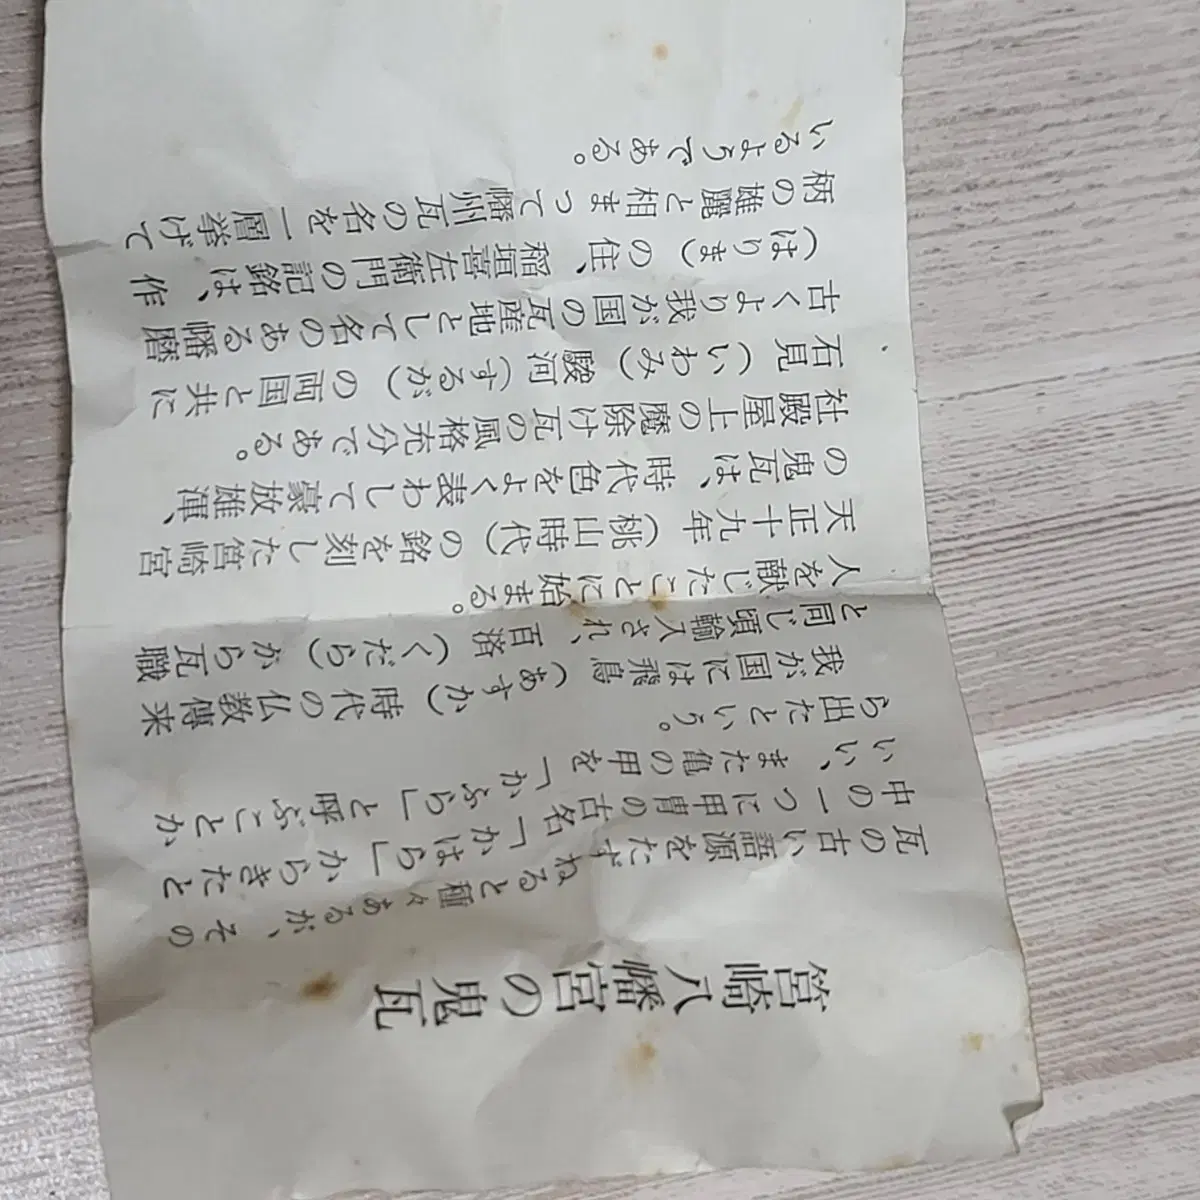 筥崎八幡宮の鬼瓦
瓦の古い語源をたずねると種々あるが、その
中の一つに甲冑の古名「かはら」からきたと
いい、また亀の甲を「かふら」と呼ぶことか
ら出たという。
我が国には飛鳥(あすか)時代の仏教傳来
と同じ頃輸入され、百済(くだら)から瓦職
人を献じたことに始まる。
天正十九年(桃山時代)の銘を刻した筥崎宮
の鬼瓦は、時代色をよく表わして豪放雄渾、
社殿屋上の魔除け瓦の風格充分である。
石見(いわみ)駿河(するが)の両国と共に
古くより我が国の瓦産地として名のある幡磨
(はりま)の住、稲垣喜左衛門の記銘は、作
柄の雄麗と相まって幡州瓦の名を一層挙げて
いるようである。